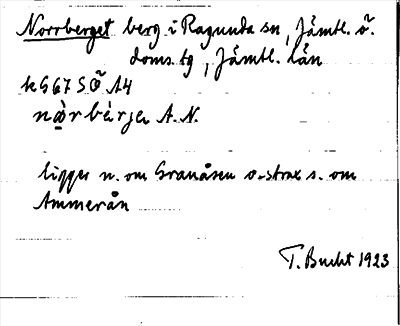 Norrberget berg i Ragunda sn, Jämtl. ö.
doms. tg, Jämtl. län
k G67 S Ö A4
nòrbérje A.N.
ligger n. om Granåsen o. strax s. om
Ammerån
T. Bucht 1923